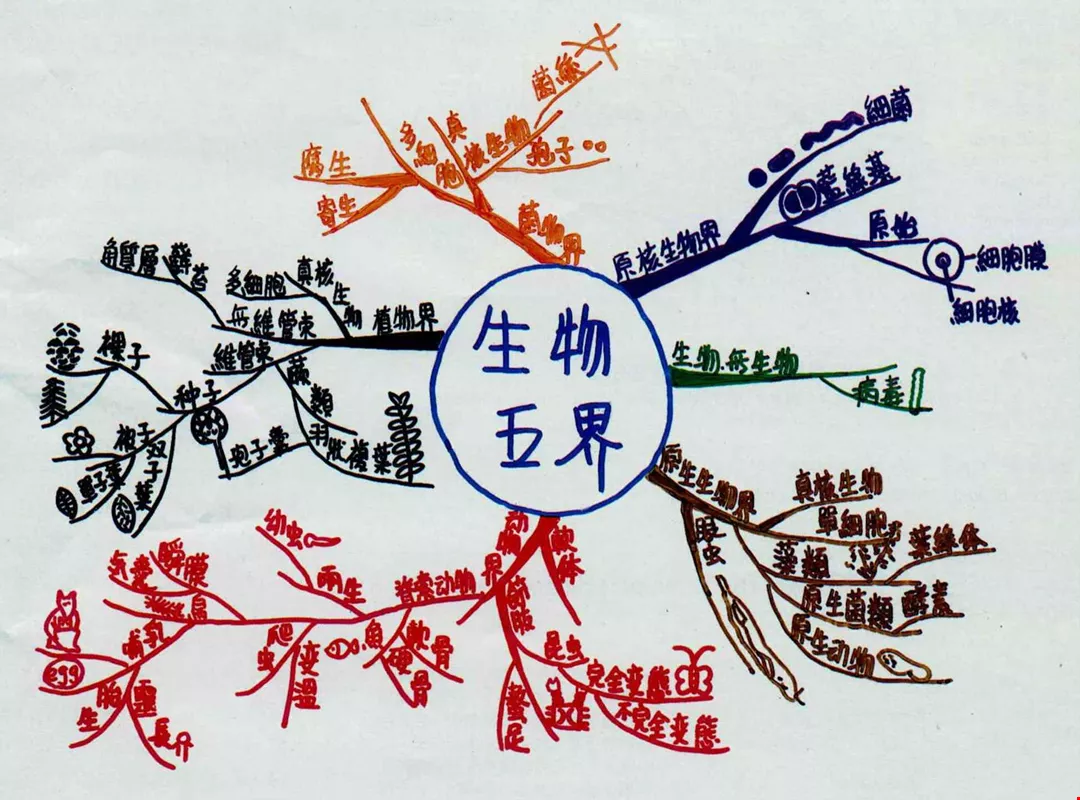 生物
五界
原核生物界
細菌
藍綠藻
原始
細胞膜
細胞核
生物.無生物
病毒
原生生物界
真核生物
單細胞
藻類
葉綠体
原生菌類
酵素
原生动物
动物界
軟体
節肢
昆虫
完全变態
不完全变態
螯足
脊索动物
魚
軟骨
硬骨
兩生
幼虫
爬虫
变溫
鳥
瞬膜
气囊
哺乳
胎生
靈長
植物界
真核生物
多細胞
无維管束
蘚苔
角質層
維管束
蕨類
羽狀複葉
孢子囊
种子
裸子
被子
單子葉
双子葉
菌物界
真核生物
菌絲
孢子
多細胞
腐生
寄生